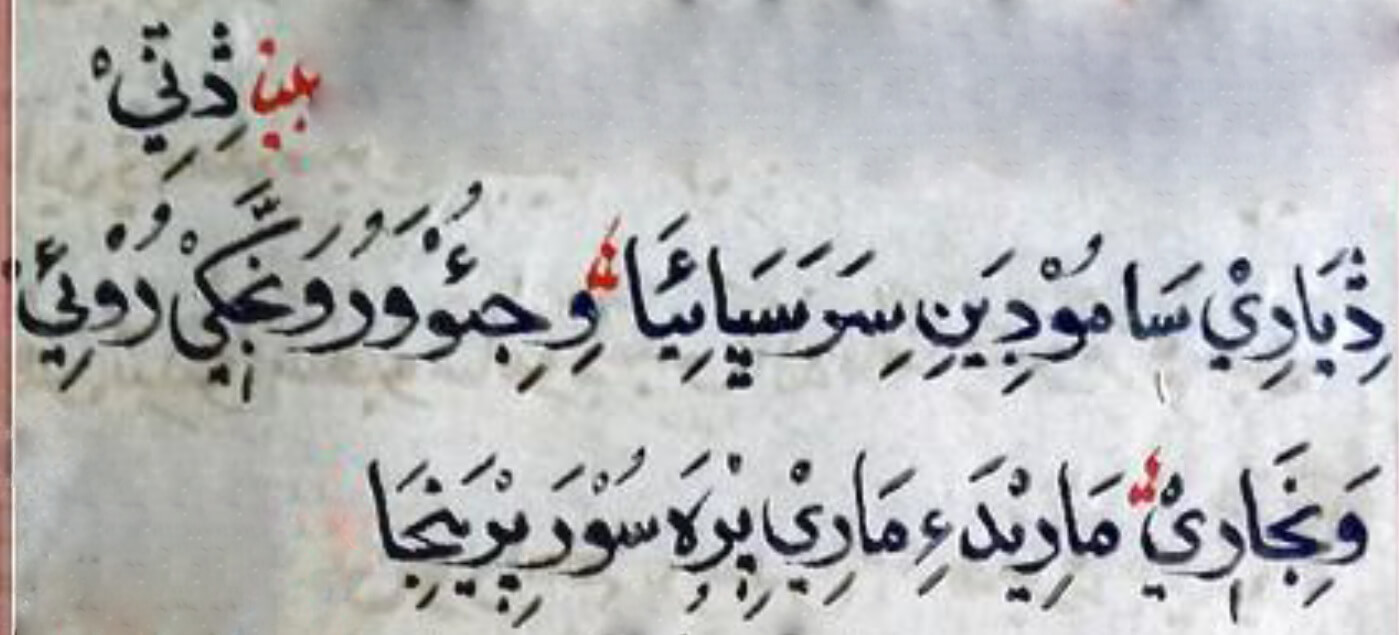 بيت ڎِنِيْ
ڎِيَارِيْ سَامُوْدِيَنِ سِرَسَيَائِيَا وِجِئُوْ وَرُ وَنَّجَكِيْ رُوْئِيْ
وَنِجَارِيْ مَارِيْدَءِ مَارِيْ پِرَهَ سُوْرَ پِرْيَنِجَا